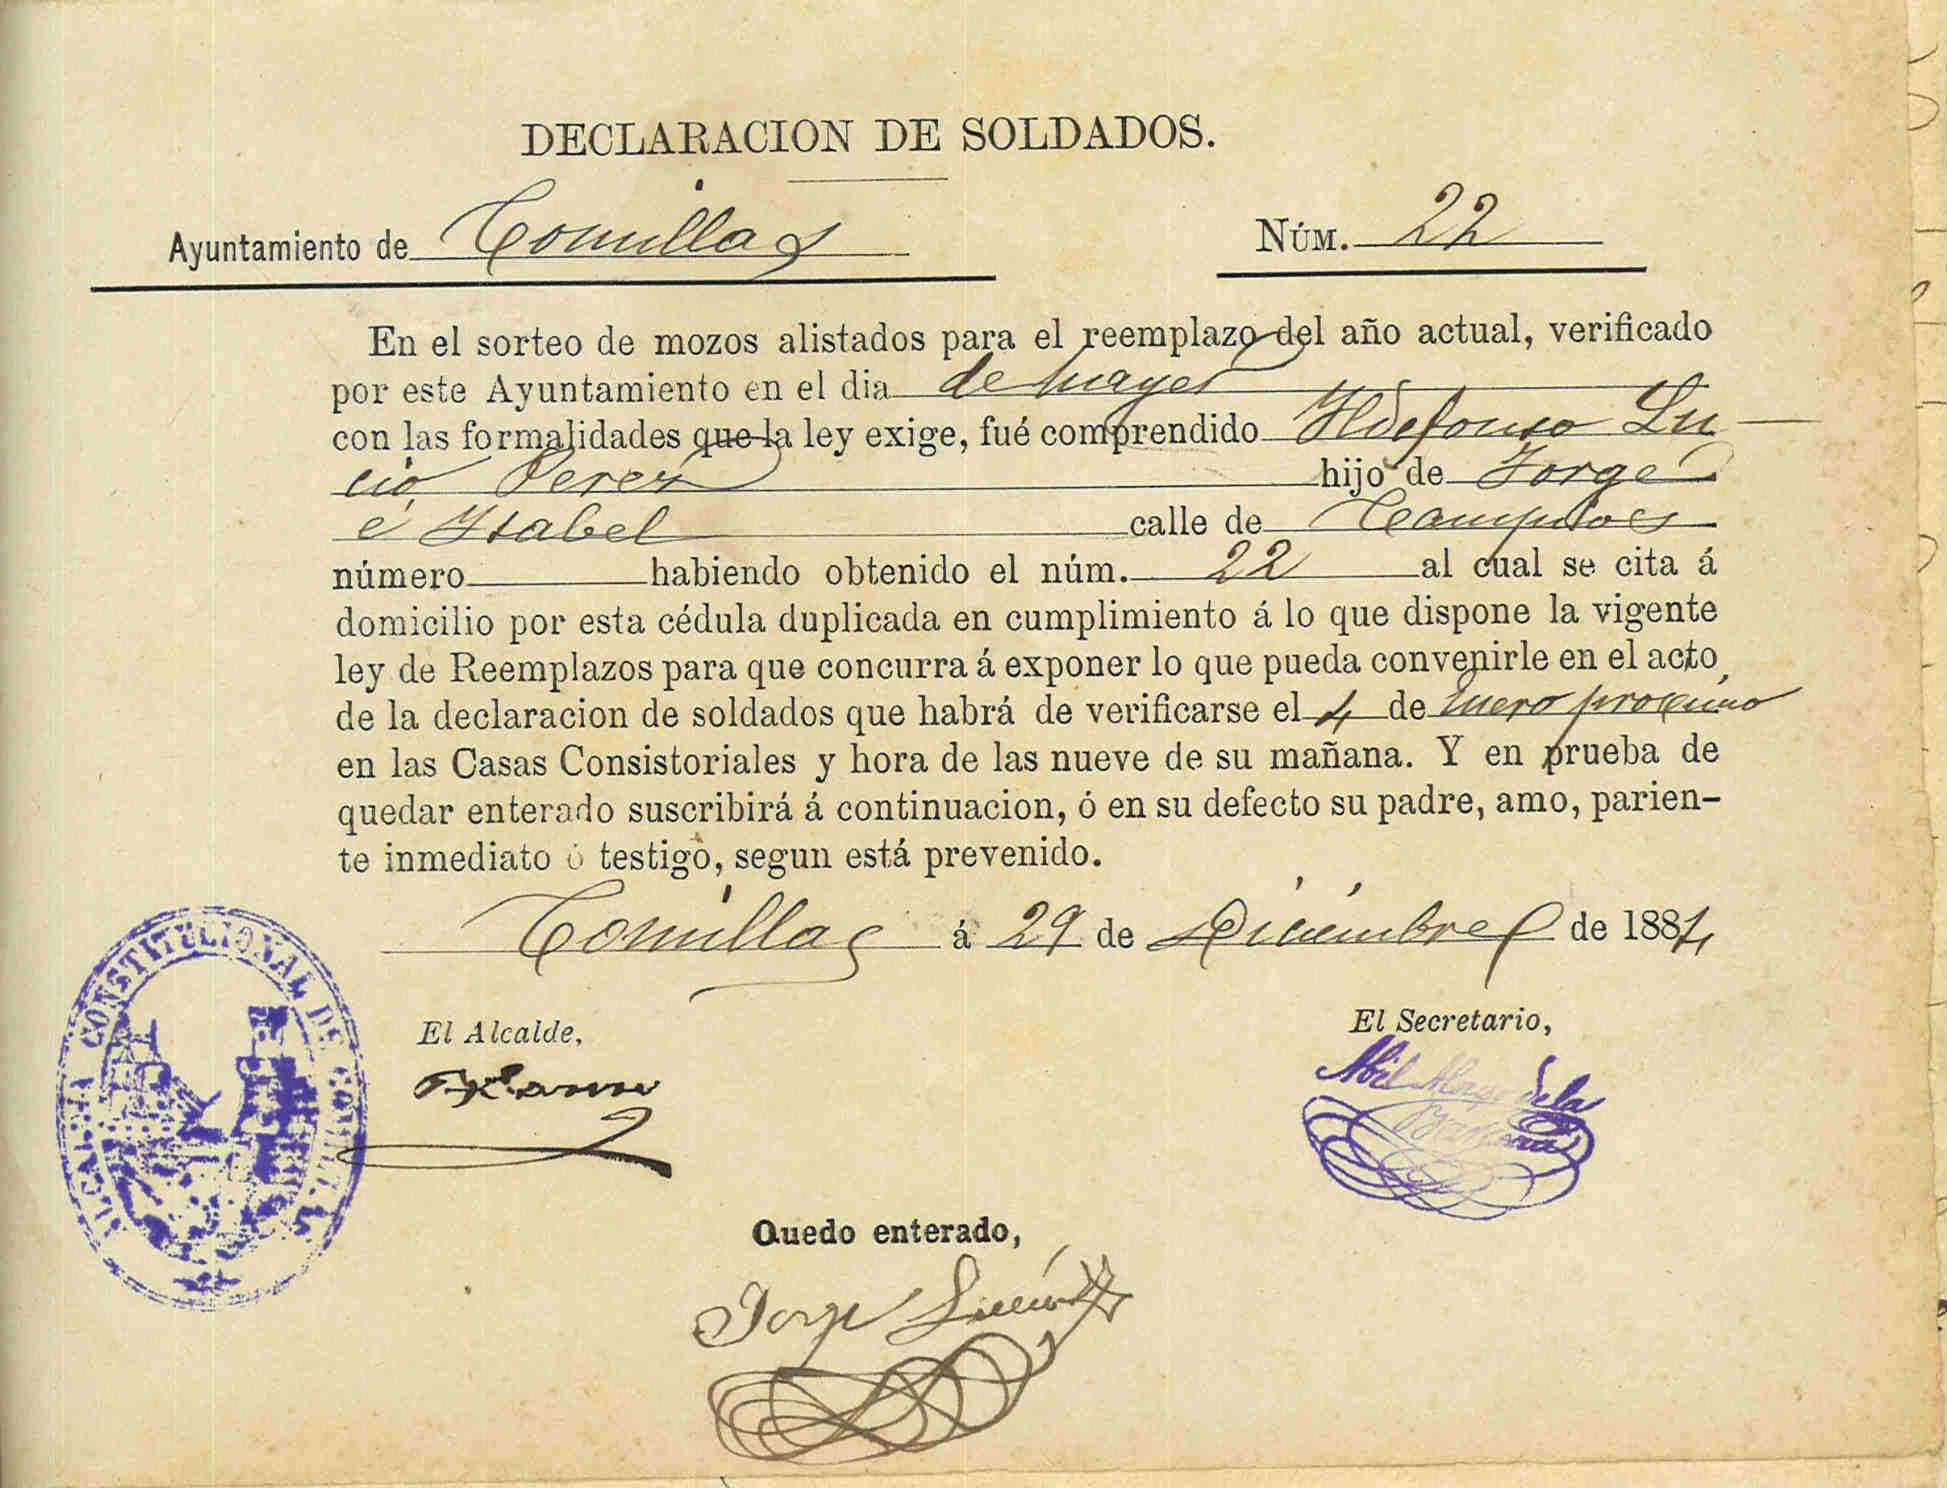 DECLARACION DE SOLDADOS.
Ayuntamiento de Comillas NÚM. 22
En el sorteo de mozos alistados para el reemplazo del año actual, verificado
por este Ayuntamiento en el dia de mayor
con las formalidades que la ley exige, fué comprendido Ildefonso Lu
cio Perez hijo de Jorge
é Isabel calle de Campios
número habiendo obtenido el núm. 22 al cual se cita á
domicilio por esta cédula duplicada en cumplimiento á lo que dispone la vigente
ley de Reemplazos para que concurra á exponer lo que pueda convenirle en el acto
de la declaracion de soldados que habrá de verificarse el 4 de Enero proximo
en las Casas Consistoriales y hora de las nueve de su mañana. Y en prueba de
quedar enterado suscribirá á continuacion, ó en su defecto su padre, amo, parien-
te inmediato ó testigo, segun está prevenido.
Comillas á 29 de Diciembre de 1884
ALCALDIA CONSTITUCIONAL DE COMILLAS
El Alcalde,
El Secretario,
Abil Alonso de la
Quedo enterado,
Jorge Lucio